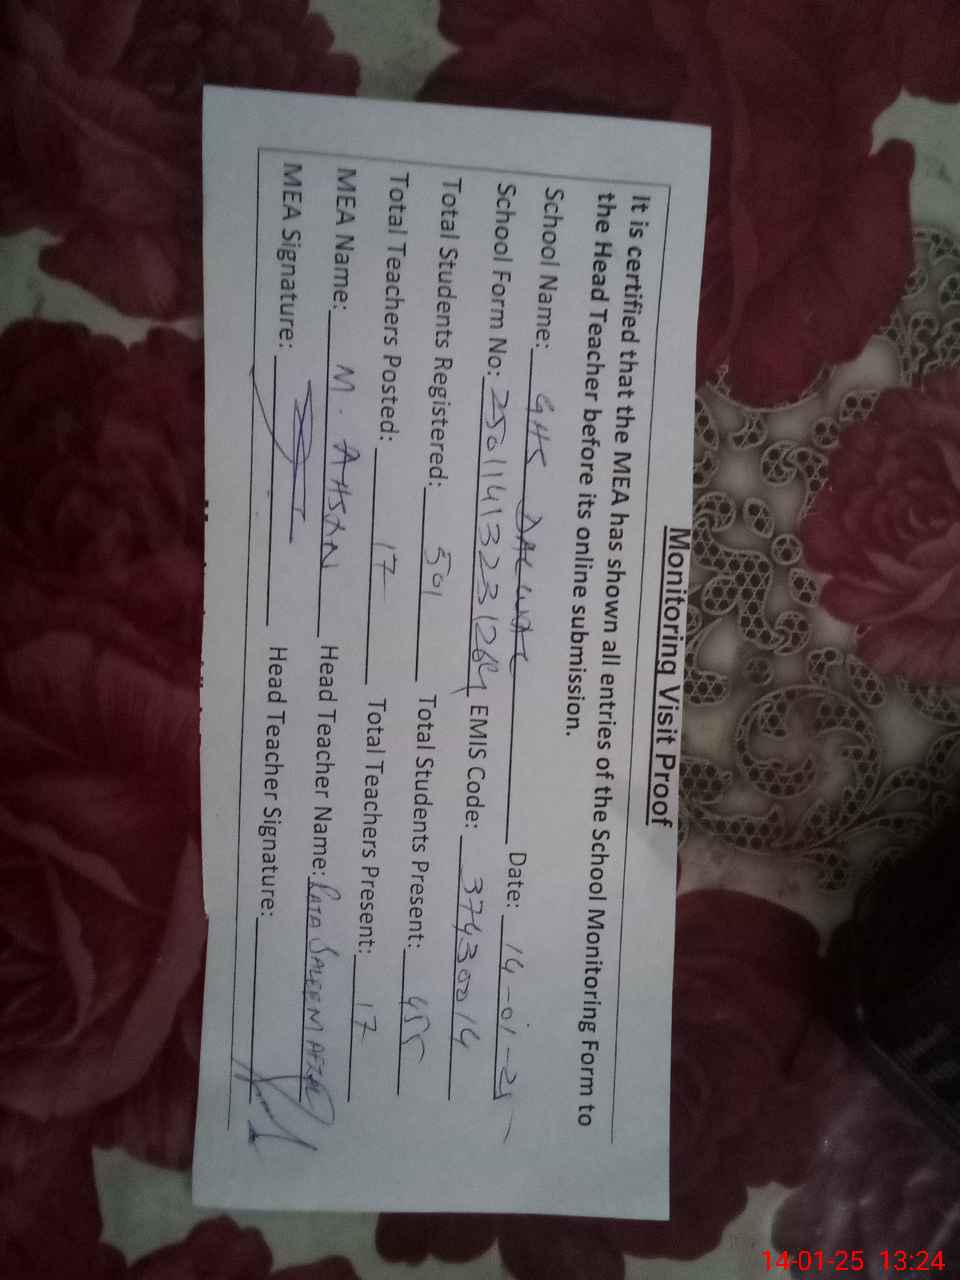 Monitoring Visit Proof
It is certified that the MEA has shown all entries of the School Monitoring Form to
the Head Teacher before its online submission.
School Name: GHS Date: 14-01-25
School Form No: EMIS Code: 37430014
Total Students Registered: 501 Total Students Present: 455
Total Teachers Posted: 17 Total Teachers Present: 17
MEA Name: M. AHSAN Head Teacher Name: RAJA SALEEM
MEA Signature: Head Teacher Signature:
14-01-25 13:24